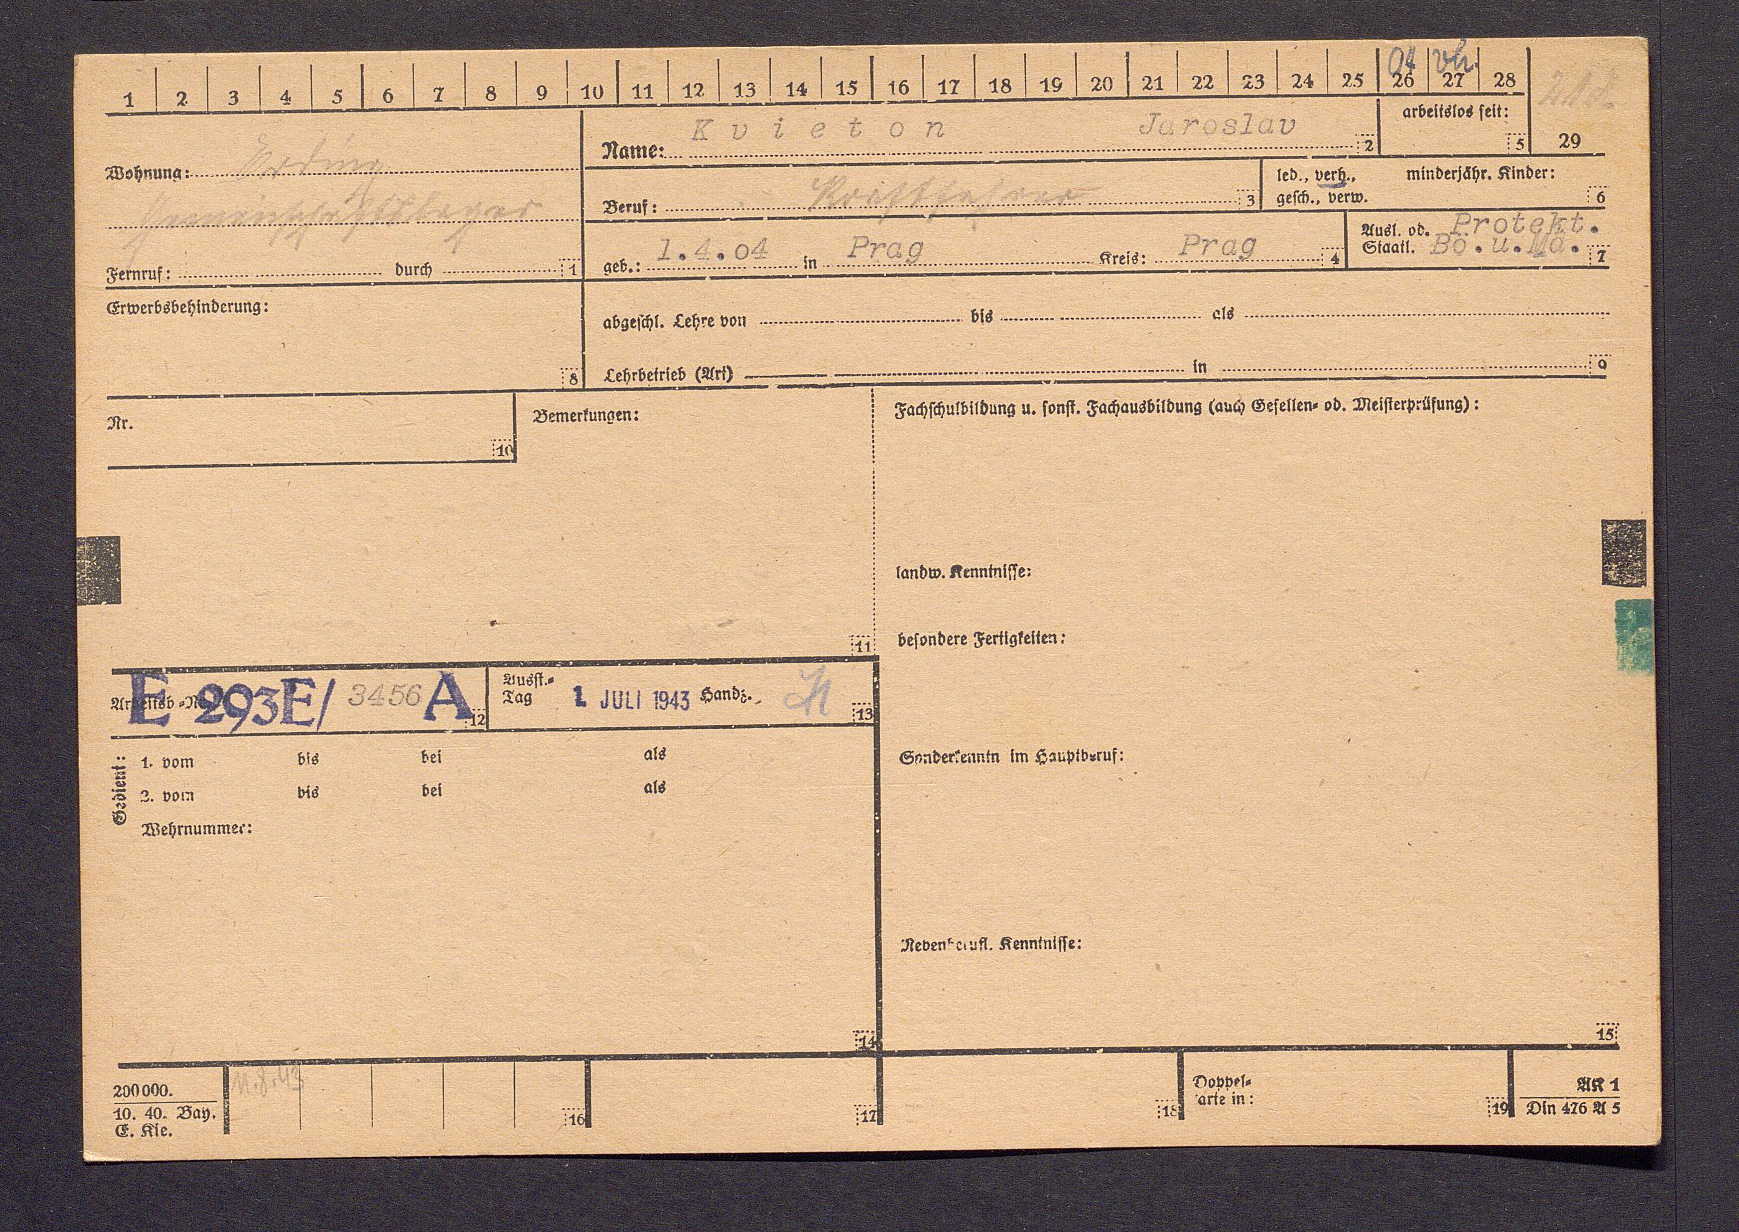 1 2 3 4 5 6 7 8 9 10 11 12 13 14 15 16 17 18 19 20 21 22 23 24 25 26 27 28
04 vh.
arbeitslos seit:
5 29
Name: Kvieton Jaroslav 2
Wohnung: Erding
Gemeinschaftslager
Beruf: Kraftfahrer 3
led., verh.,
gesch., verw.
minderjähr. Kinder:
6
geb.: 1.4.04 in Prag Kreis: Prag 4
Ausl. od. Protekt.
Staatl. Bö.u.Mä. 7
Fernruf: durch 1
Erwerbsbehinderung:
8
abgeschl. Lehre von bis als
Lehrbetrieb (Art) in 9
Nr.
10
Bemerkungen:
11
Fachschulbildung u. sonst. Fachausbildung (auch Gesellen- od. Meisterprüfung):
landw. Kenntnisse:
besondere Fertigkeiten:
Arbeitsb.-Nr. E 293E/ 3456 A 12
Ausst.-
Tag 1. JULI 1943 Handz. 13
Gedient:
1. vom bis bei als
2. vom bis bei als
Wehrnummer:
14
Sonderkenntn im Hauptberuf:
Nebenberufl. Kenntnisse:
15
200000.
10. 40. Bay.
E. Kle.
11.8.43
16
17
18
Doppel-
karte in:
19
AK 1
Din 476 A 5